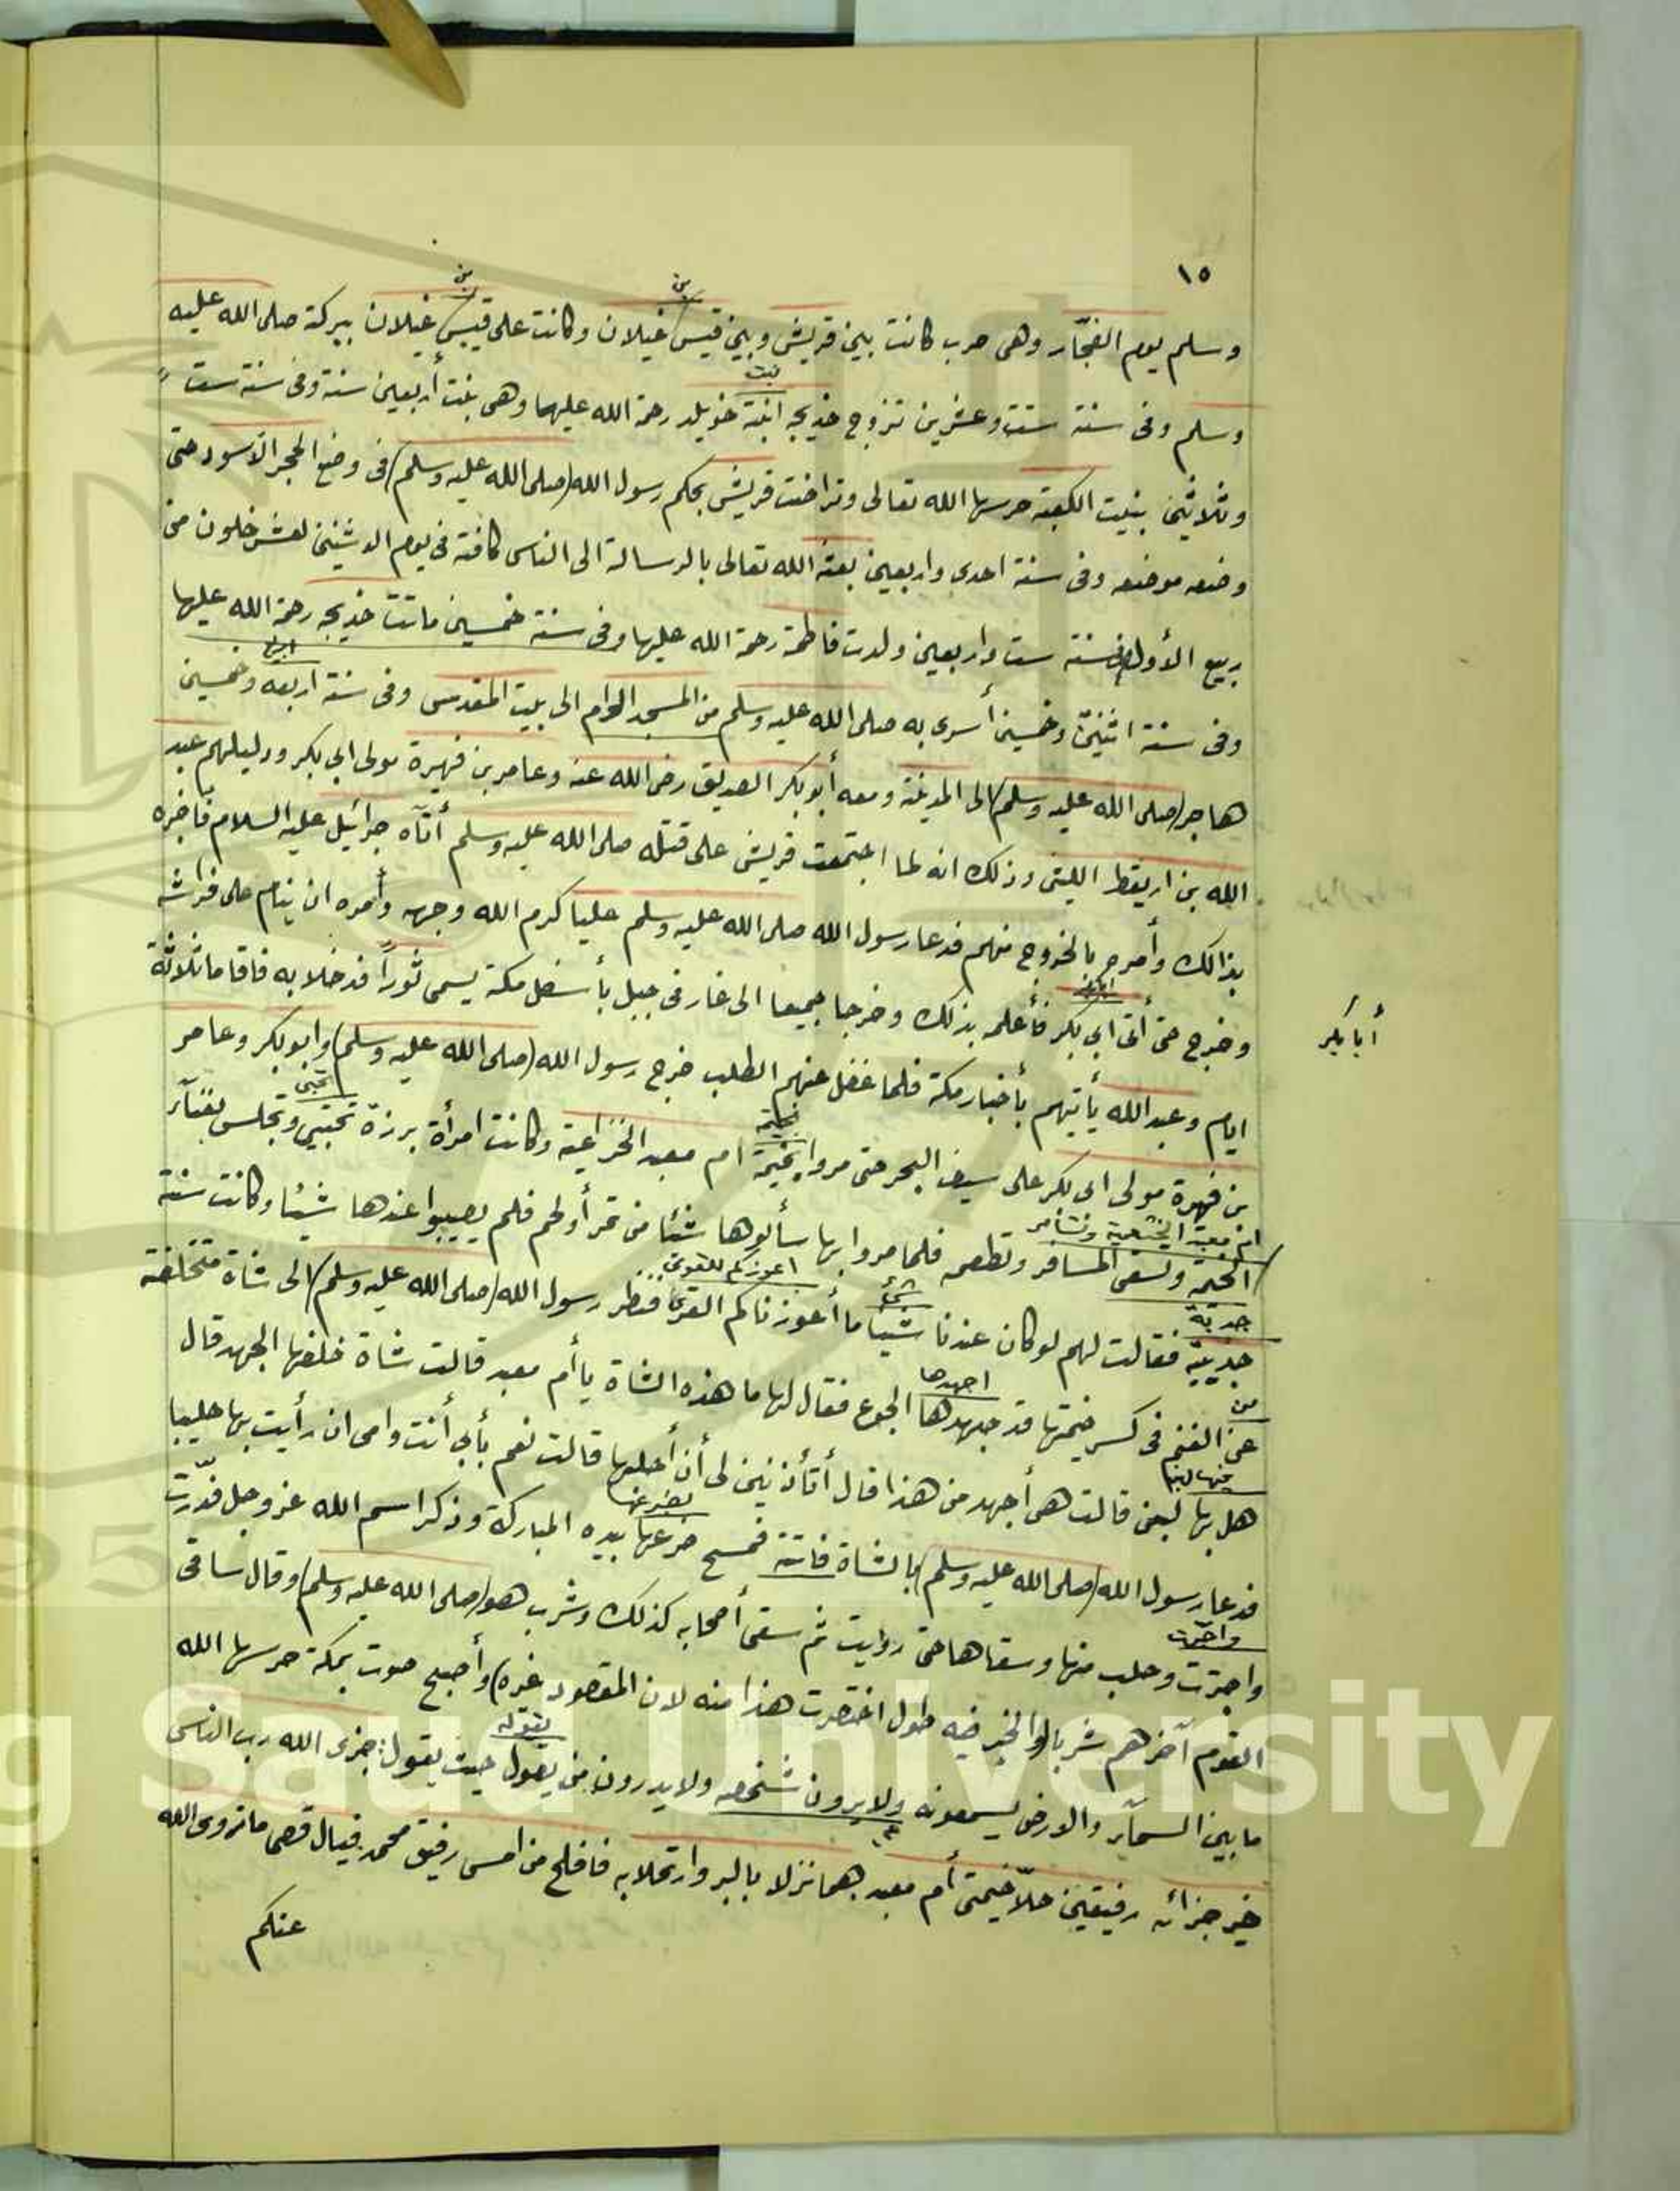 ١٥
وسلم يوم الفجّار وهى حرب كانت بين قريش وبين قيس غيلان وكانت على قيس غيلان ببركة صلى الله عليه
بن
بن
وسلم وفى سنة ست وعشرين تزوج خديجه ابنة خويلد رحمة الله عليهما وهى بنت أربعين سنة وفى سنة ست
بنت
وثلاثين بنيت الكعبة حرسها الله تعالى وتراضت قريش بحكم رسول الله (صلى الله عليه وسلم) فى وضع الحجر الاسود حتى
وضعه موضعه وفى سنة احدى واربعين بعثه الله تعالى بالرسالة الى الناس كافة فى يوم الاثنين لعشر خلون من
ربيع الأول وفى سنة ست واربعين ولدت فاطمة رحمة الله عليها وفى سنة خمسين ماتت خديجه رحمة الله عليها
وفى سنة اثنين وخمسين أسرى به صلى الله عليه وسلم من المسجد الحرام الى بيت المقدس وفى سنة اربعه وخمسين
هاجر (صلى الله عليه وسلم) الى المدينة ومعه أبو بكر الصديق رضى الله عنه وعامر بن فهيرة مولى ابى بكر ودليلهم عبد
الله بن اريقط الليثى وذلك انه لما اجتمعت قريش على قتله صلى الله عليه وسلم أتآه جرائيل عليه السلام فأخبره
بذالك وأمره بالخروج منهم فدعا رسول الله صلى الله عليه وسلم عليا كرم الله وجهه وأمره ان ينام على فراشه
وخرج حتى أتى ابى بكر فأعلمه بذلك وخرجا جميعا الى غار فى جبل بأسفل مكة يسمى ثوراً فدخلا به فاقاما ثلاثة
أبا بكر
ايام وعبد الله يأتيهم بأخبار مكة فلما غفل عنهم الطلب خرج رسول الله (صلى الله عليه وسلم) وابو بكر وعامر
بن فهرة مولى ابى بكر على سيف البحر حتى مروا بخيمة ام معبد الخزاعية وكانت امرأة برزة تحتبي وتجلس بفنآء
بخيمة
تحتبى
الخيمة وتسقى المسافر وتطعمه فلما مروا بها سألوها شئا من تمر أو لحم فلم يصيبوا عندها شيئا وكانت سنة
ام معبد
جديبة فقالت لهم لو كان عندنا شيئا ما أعوزناكم القرى فنظر رسول الله (صلى الله عليه وسلم) الى شاة متخلفة
جدبة
شئ
اعوزكم للقرى
عن الغنم فى كسر خيمتها قد جهدها الجوع فقال لها ما هذه الشاة يا أم معبد قالت شاة خلفها الجهد قال
من
اجهدها
هل بها لبن قالت هى أجهد من هذا قال أتأذنين لى أن أحلبها قالت نعم بأبي أنت وامى ان رأيت بها حليبا
فدعا رسول الله (صلى الله عليه وسلم) بالشاة فاتته فمسح ضرعها بيده المباركة وذكر اسم الله عز وجل فدّرت
بضرعها
واجترت وحلب منها وسقاها حتى رويت ثم سقى أصحابه كذلك وشرب هو (صلى الله عليه وسلم) وقال ساقى
واجترت
القوم آخرهم شربا (والخبر فيه طول اختصرت هذا منه لان المقصود غيره) وأصبح صوت بمكة حرسها الله
ما بين السمآء والارض يسمعونه ولا يرون شخصه ولا يدرون من يقول حيث يقول: جزى الله رب الناس
بقوله
خير جزائه رفيقين حلّا خيمتى أم معبد هما نزلا بالبر وارتحلا به فافلح من امسى رفيق محمد فيال قصى ما زوى الله
عنكم
King Saud University